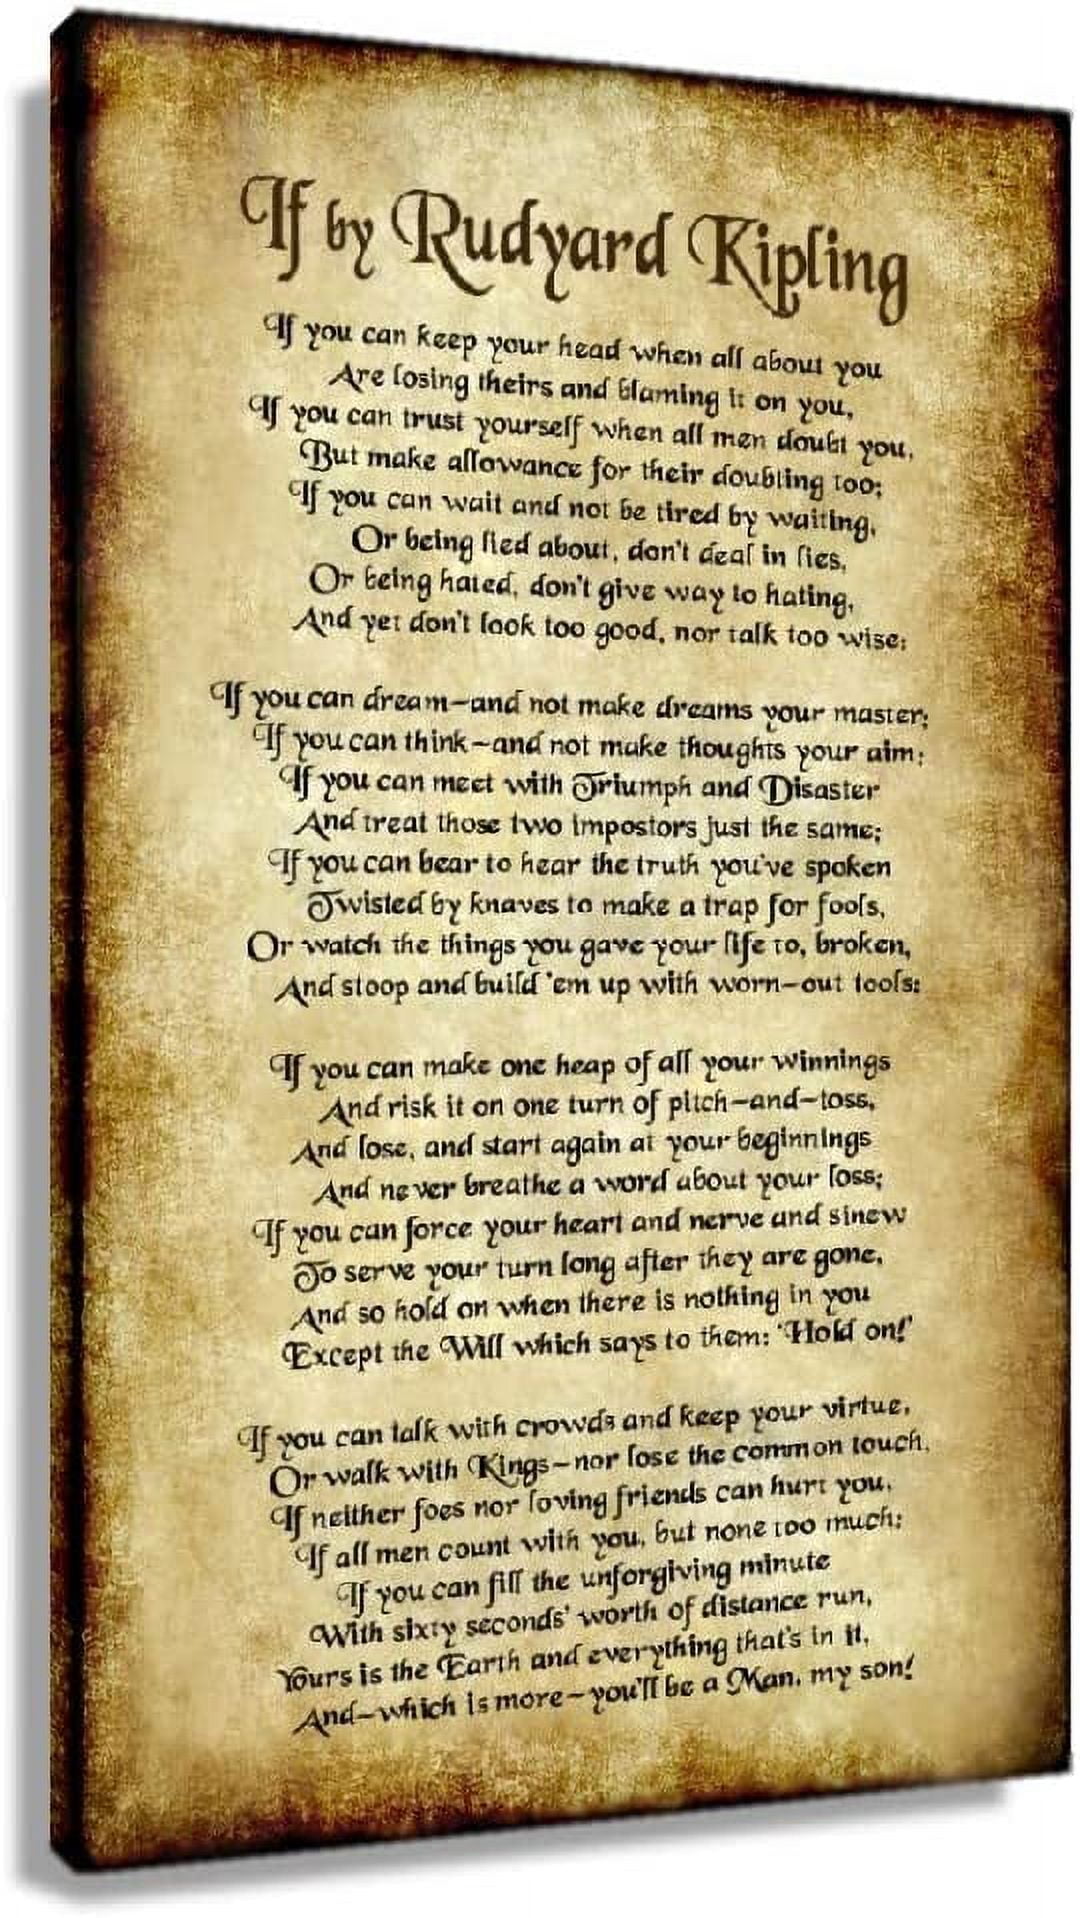 If by Rudyard Kipling
If you can keep your head when all about you
Are losing theirs and blaming it on you,
If you can trust yourself when all men doubt you,
But make allowance for their doubting too;
If you can wait and not be tired by waiting,
Or being lied about, don't deal in lies,
Or being hated, don't give way to hating,
And yet don't look too good, nor talk too wise:
If you can dream—and not make dreams your master;
If you can think—and not make thoughts your aim;
If you can meet with Triumph and Disaster
And treat those two impostors just the same;
If you can bear to hear the truth you've spoken
Twisted by knaves to make a trap for fools,
Or watch the things you gave your life to, broken,
And stoop and build 'em up with worn-out tools:
If you can make one heap of all your winnings
And risk it on one turn of pitch-and-toss,
And lose, and start again at your beginnings
And never breathe a word about your loss;
If you can force your heart and nerve and sinew
To serve your turn long after they are gone,
And so hold on when there is nothing in you
Except the Will which says to them: 'Hold on!'
If you can talk with crowds and keep your virtue,
Or walk with Kings—nor lose the common touch,
If neither foes nor loving friends can hurt you,
If all men count with you, but none too much;
If you can fill the unforgiving minute
With sixty seconds' worth of distance run,
Yours is the Earth and everything that's in it,
And—which is more—you'll be a Man, my son!